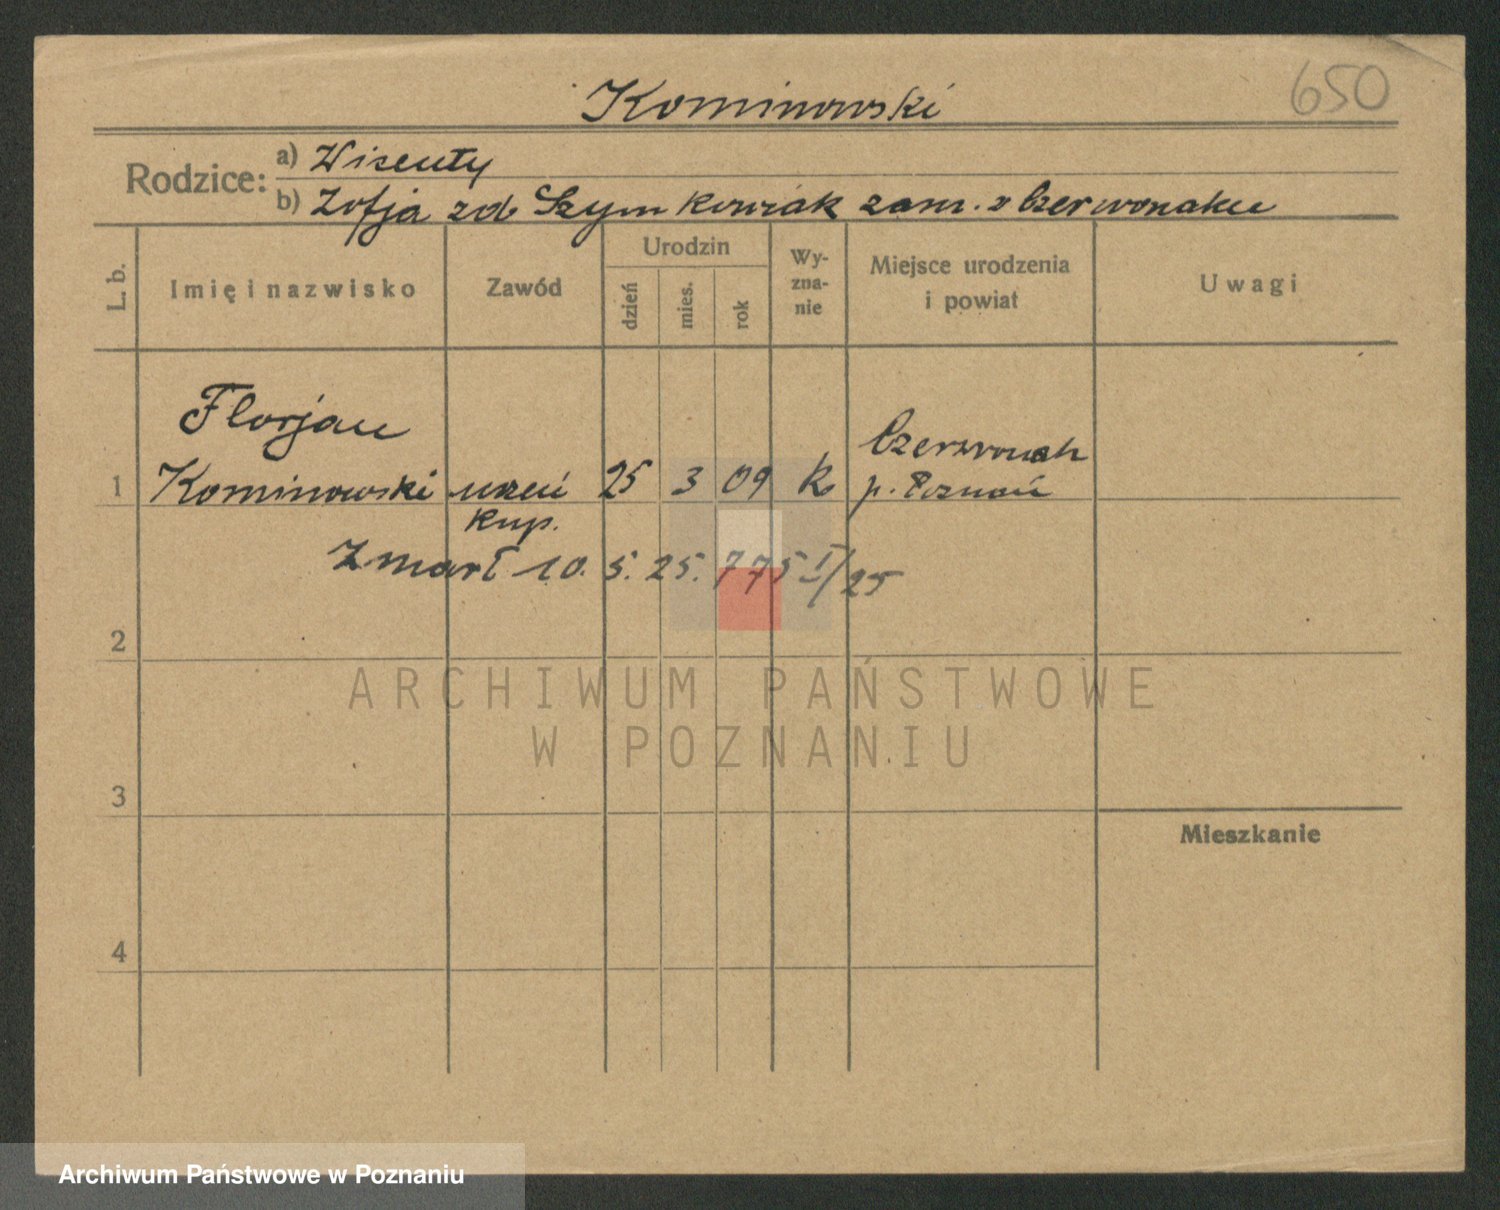 650
Kominowski
Rodzice: a) Wisenty
b) Zofja zd Szymkowiak zam. w Czerwonaku
L. b.
Imię i nazwisko
Zawód
Urodzin
dzień
mies.
rok
Wy-
zna-
nie
Miejsce urodzenia
i powiat
Uwagi
Florjan
Czerwonak
1 Kominowski uczeń 25 3 09 K p. Poznań
kup.
Zmarł 10. 5. 25. 775 I/25
2
ARCHIWUM PAŃSTWOWE
W POZNANIU
3
Mieszkanie
4
Archiwum Państwowe w Poznaniu